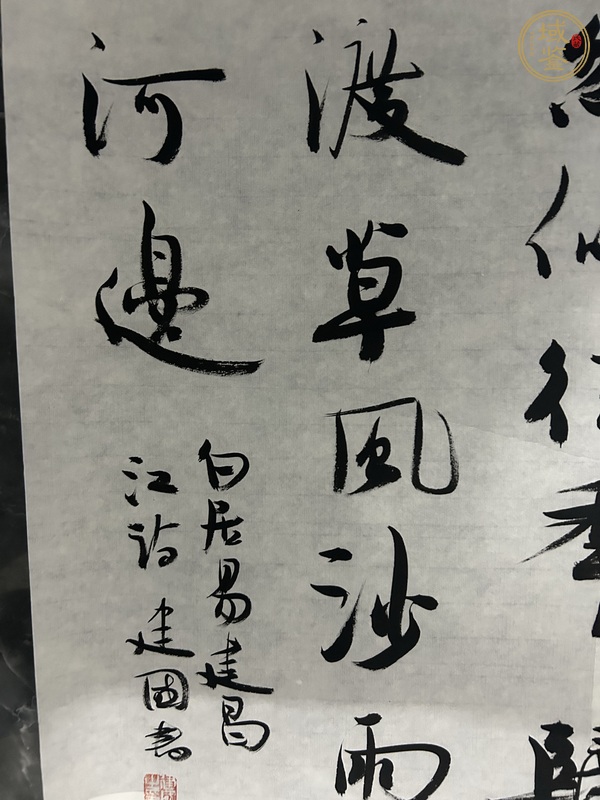 渡草風沙雨
河邊
白居易建昌
江詩 建國書